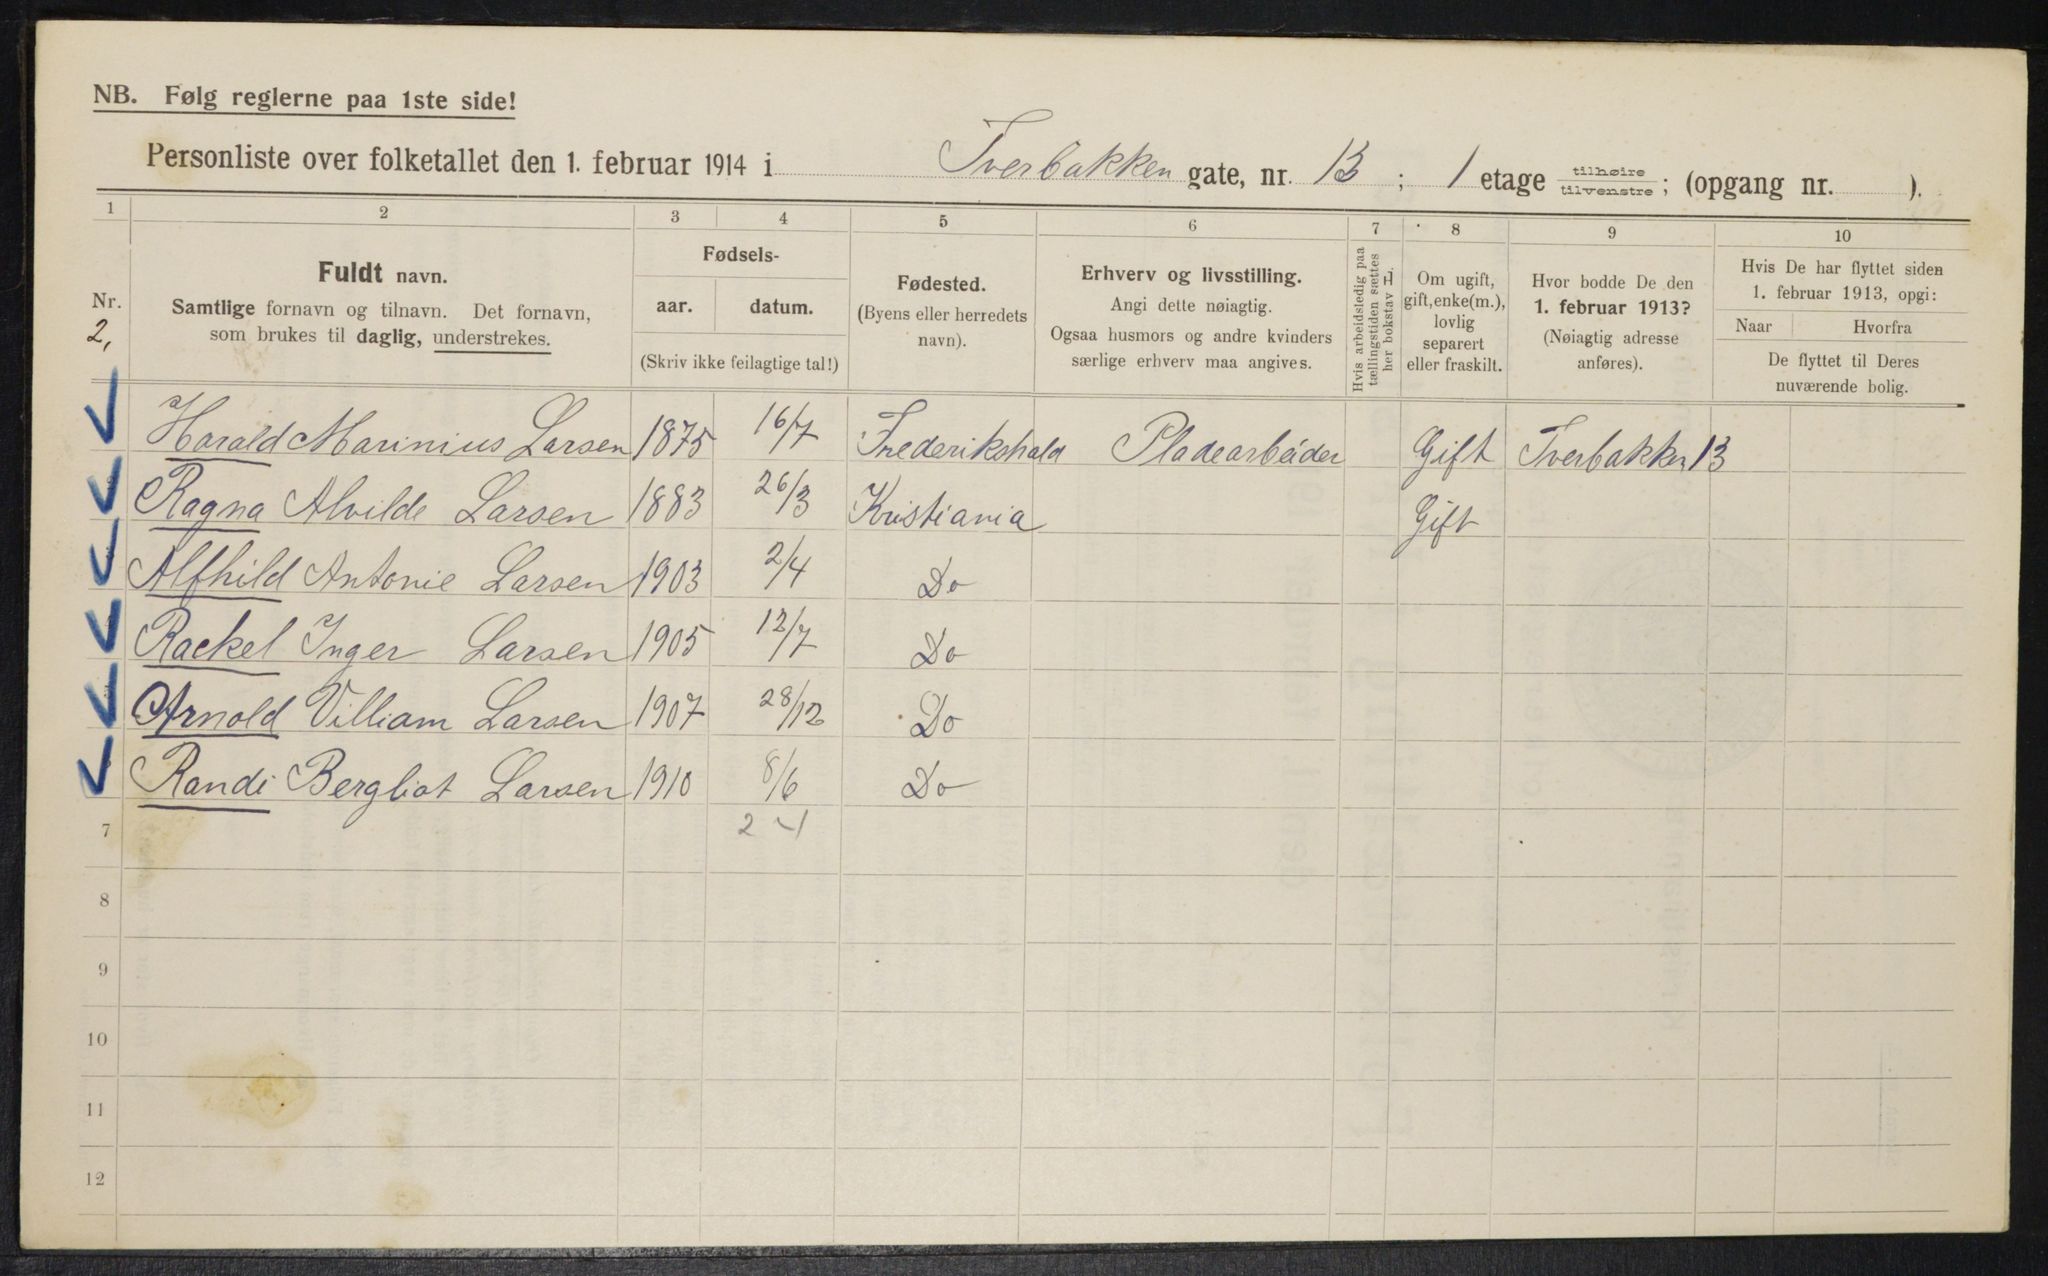 NB. Følg reglerne paa 1ste side!
Personliste over folketallet den 1. februar 1914 i Tverbakken gate, nr. 13 ; 1 etage tilhøire tilvenstre ; (opgang nr. ).
1 2 3 4 5 6 7 8 9 10
Nr.
2,
Fuldt navn.
Samtlige fornavn og tilnavn. Det fornavn,
som brukes til daglig, understrekes.
Fødsels-
aar. datum.
(Skriv ikke feilagtige tal!)
Fødested.
(Byens eller herredets
navn).
Erhverv og livsstilling.
Angi dette nøiagtig.
Ogsaa husmors og andre kvinders
særlige erhverv maa angives.
Hvis arbeidsledig paa
tællingstiden sættes
her bokstav L
Om ugift,
gift, enke(m.),
lovlig
separert
eller fraskilt.
Hvor bodde De den
1. februar 1913?
(Nøiagtig adresse
anføres).
Hvis De har flyttet siden
1. februar 1913, opgi:
Naar Hvorfra
De flyttet til Deres
nuværende bolig.
Harald Marinius Larsen 1875 16/7 Frederikshald Pladearbeider Gift Tverbakken 13
Ragna Alvilde Larsen 1883 26/3 Kristiania Gift
Alfhild Antonie Larsen 1903 2/4 Do
Rackel Inger Larsen 1905 12/7 Do
Arnold Villiam Larsen 1907 28/12 Do
Randi Bergliot Larsen 1910 8/6 Do
7 2 4
8
9
10
11
12